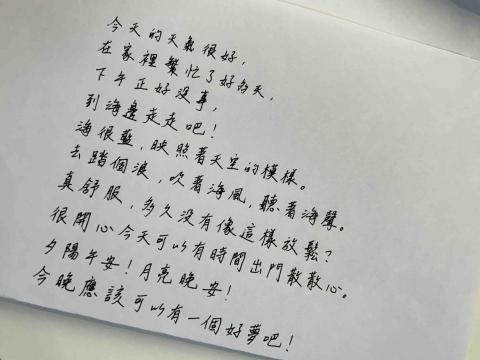 今天的天氣很好,
在家裡繁忙了好多天,
下午正好沒事,
到海邊走走吧!
海很藍,映照著天空的模樣。
去踏個浪,吹着海風,聽着海聲。
真舒服,多久沒有像這樣放鬆?
很開心今天可以有時間出門散散心。
夕陽午安!月亮晚安!
今晚應該可以有一個好夢吧!